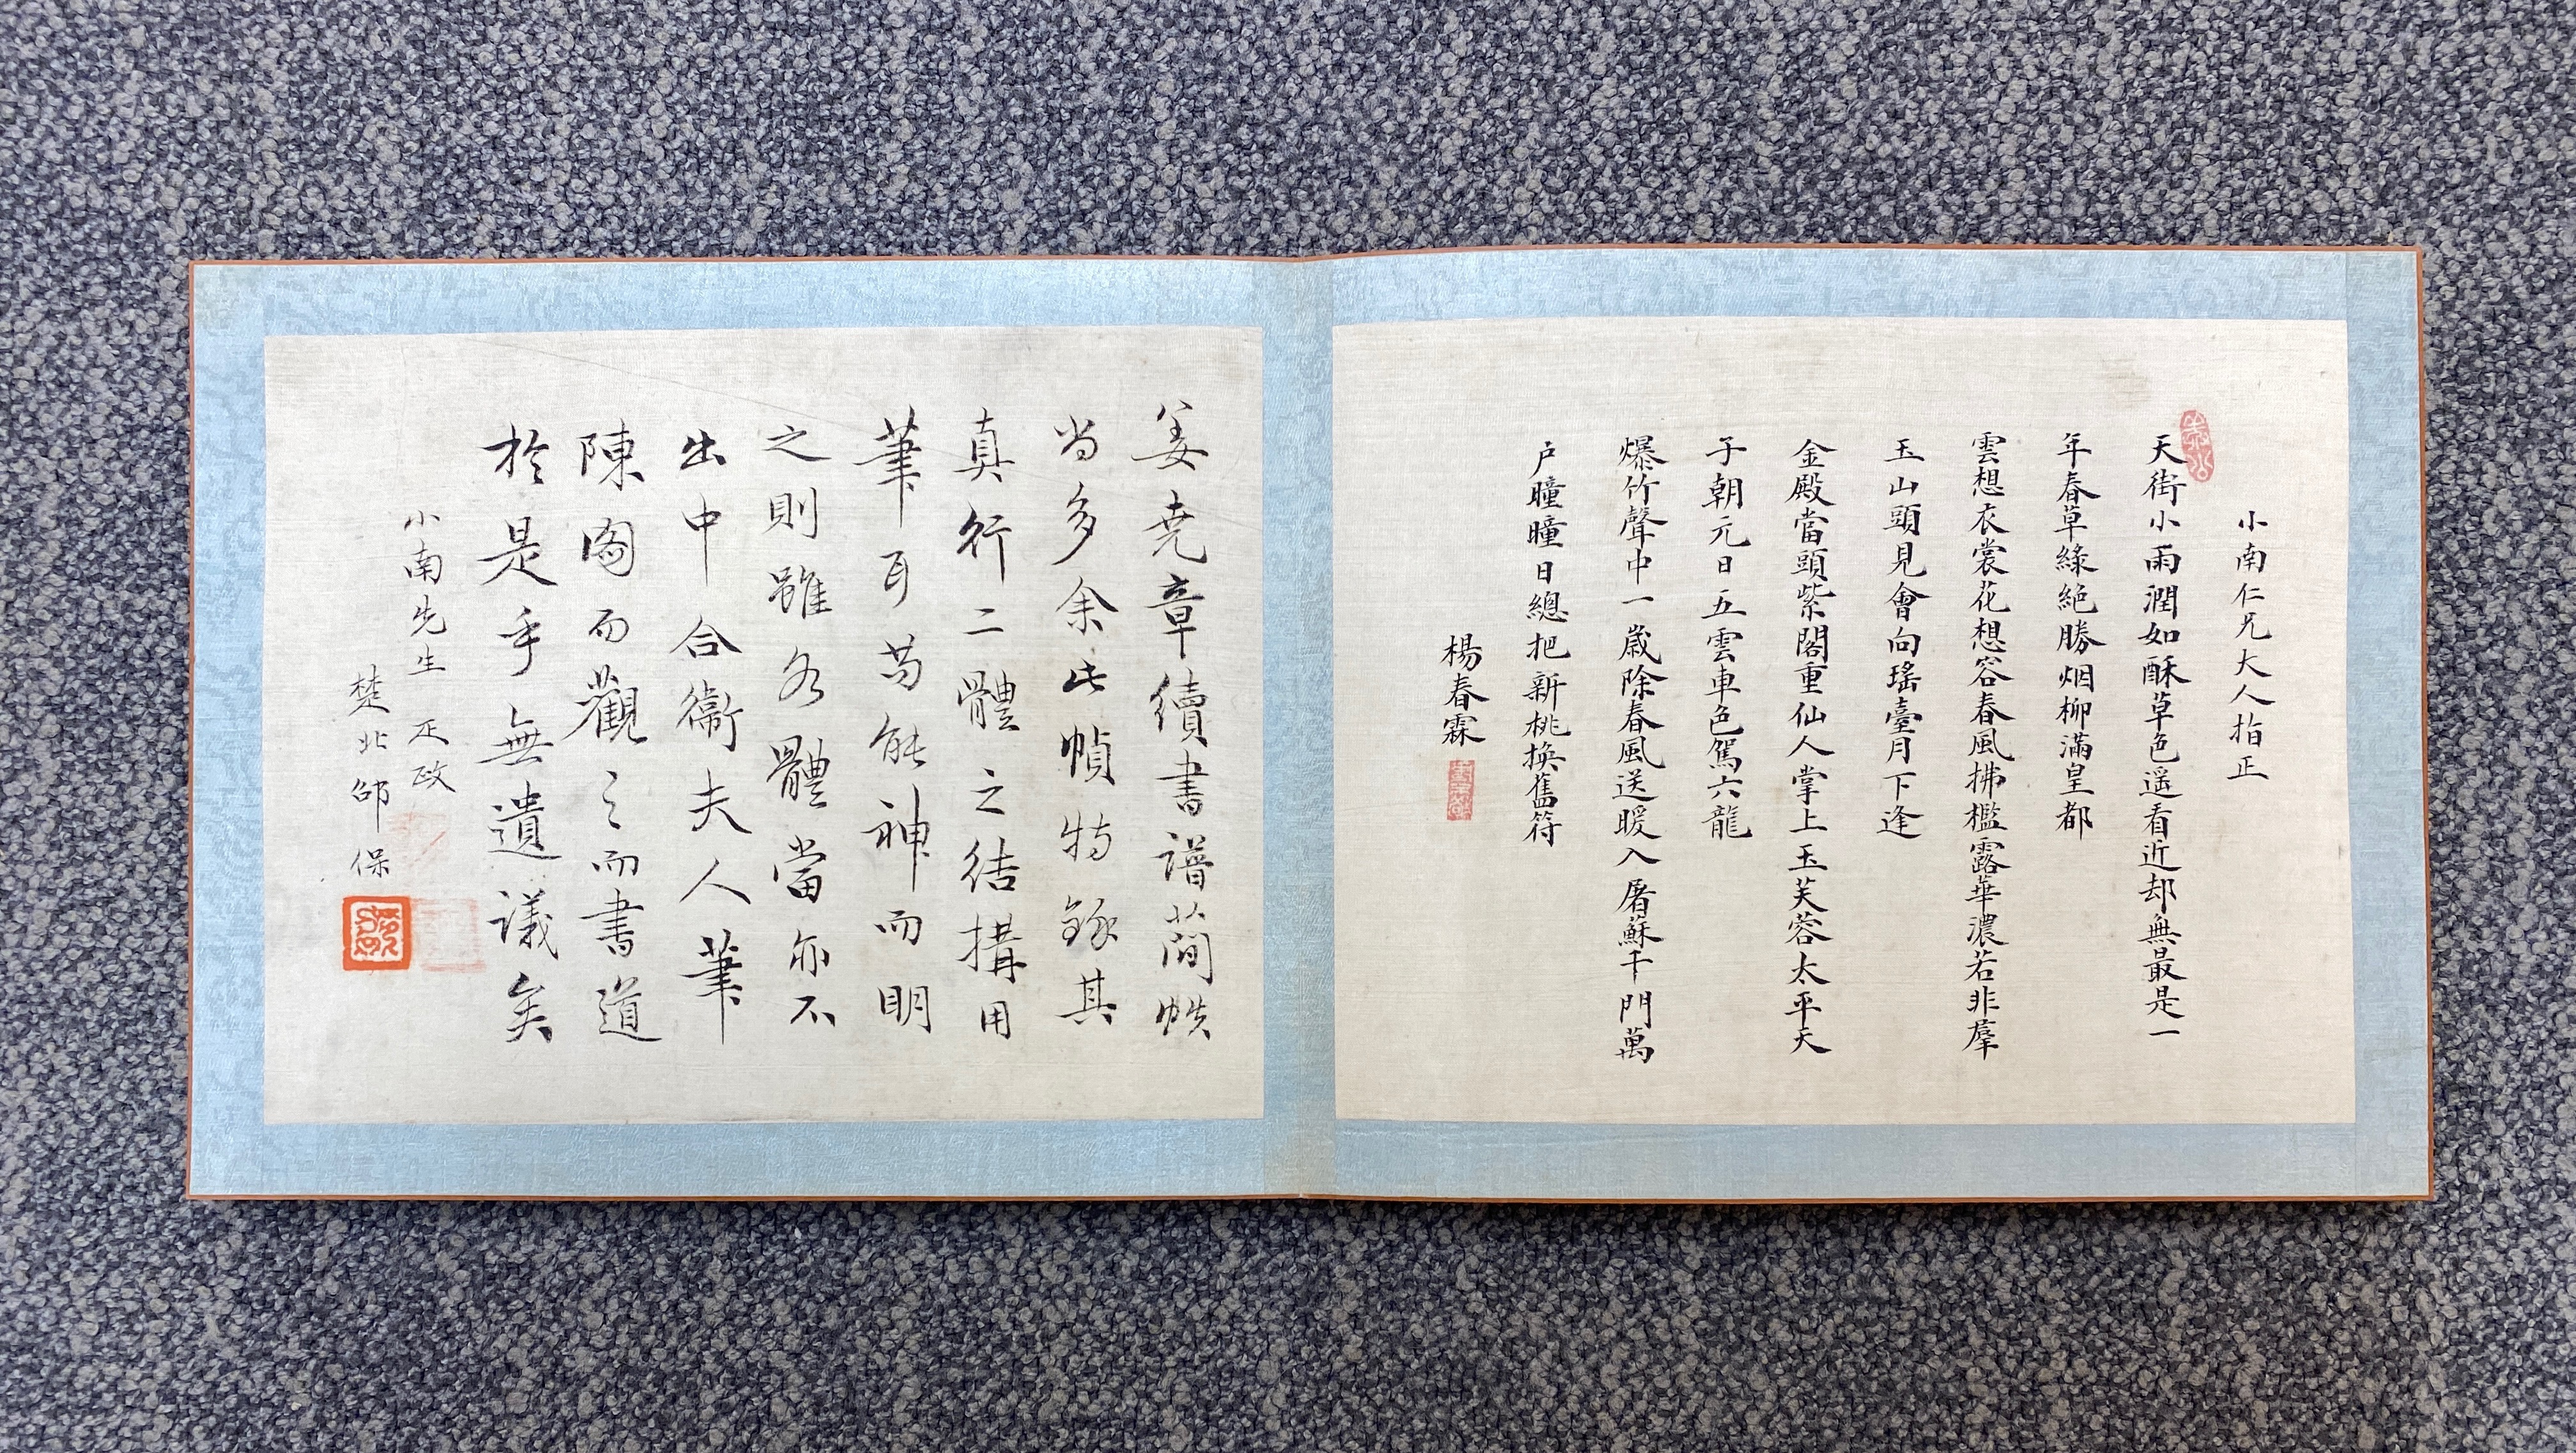 小南仁兄大人指正
天街小雨潤如酥草色遥看近却無最是一
年春草綠絕勝烟柳滿皇都
雲想衣裳花想容春風拂檻露華濃若非羣
玉山頭見會向瑤臺月下逢
金殿當頭紫閣重仙人掌上玉芙蓉太平天
子朝元日五雲車色駕六龍
爆竹聲中一歲除春風送暖入屠蘇千門萬
户曈曈日總把新桃換舊符
楊春霖
姜堯章續書譜簡帙
尚多余此幀特錄其
真行二體之結構用
筆耳苟能神而明
之則雖各體當亦不
出中合衞夫人筆
陳閣而觀之而書道
於是乎無遺議矣
小南先生正政
楚北邵保